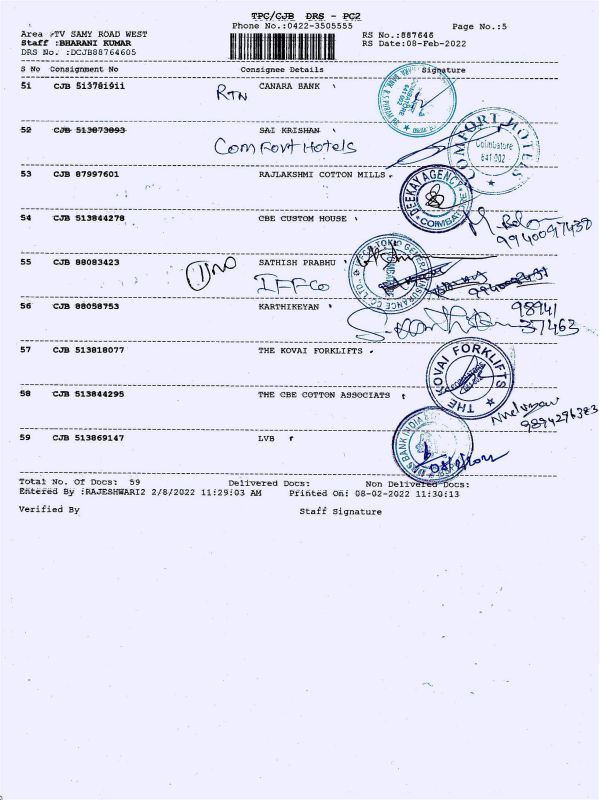 TPC/CJB DRS - PC2
Phone No.:0422-3505555
Page No.:5
Area :TV SAMY ROAD WEST
RS No.:887646
Staff :BHARANI KUMAR
RS Date:08-Feb-2022
DRS No. :DCJB88764605
S No Consignment No Consignee Details Signature
51 CJB 513781911 CANARA BANK
RTN
52 CJB 513873093 SAI KRISHAN
Comfort Hotels
COMFORT HOTELS
Coimbatore
641 002
53 CJB 87997601 RAJLAKSHMI COTTON MILLS
DEEKAY AGENCY
54 CJB 513844278 CBE CUSTOM HOUSE
9940097438
55 CJB 88083423 SATHISH PRABHU
IFFCO
56 CJB 88058753 KARTHIKEYAN
98941
37463
57 CJB 513818077 THE KOVAI FORKLIFTS
THE KOVAI FORKLIFTS
58 CJB 513844295 THE CBE COTTON ASSOCIATS
9894296383
59 CJB 513869147 LVB
Total No. Of Docs: 59 Delivered Docs: Non Delivered Docs:
Entered By :RAJESHWARI2 2/8/2022 11:29:03 AM Printed On: 08-02-2022 11:30:13
Verified By Staff Signature